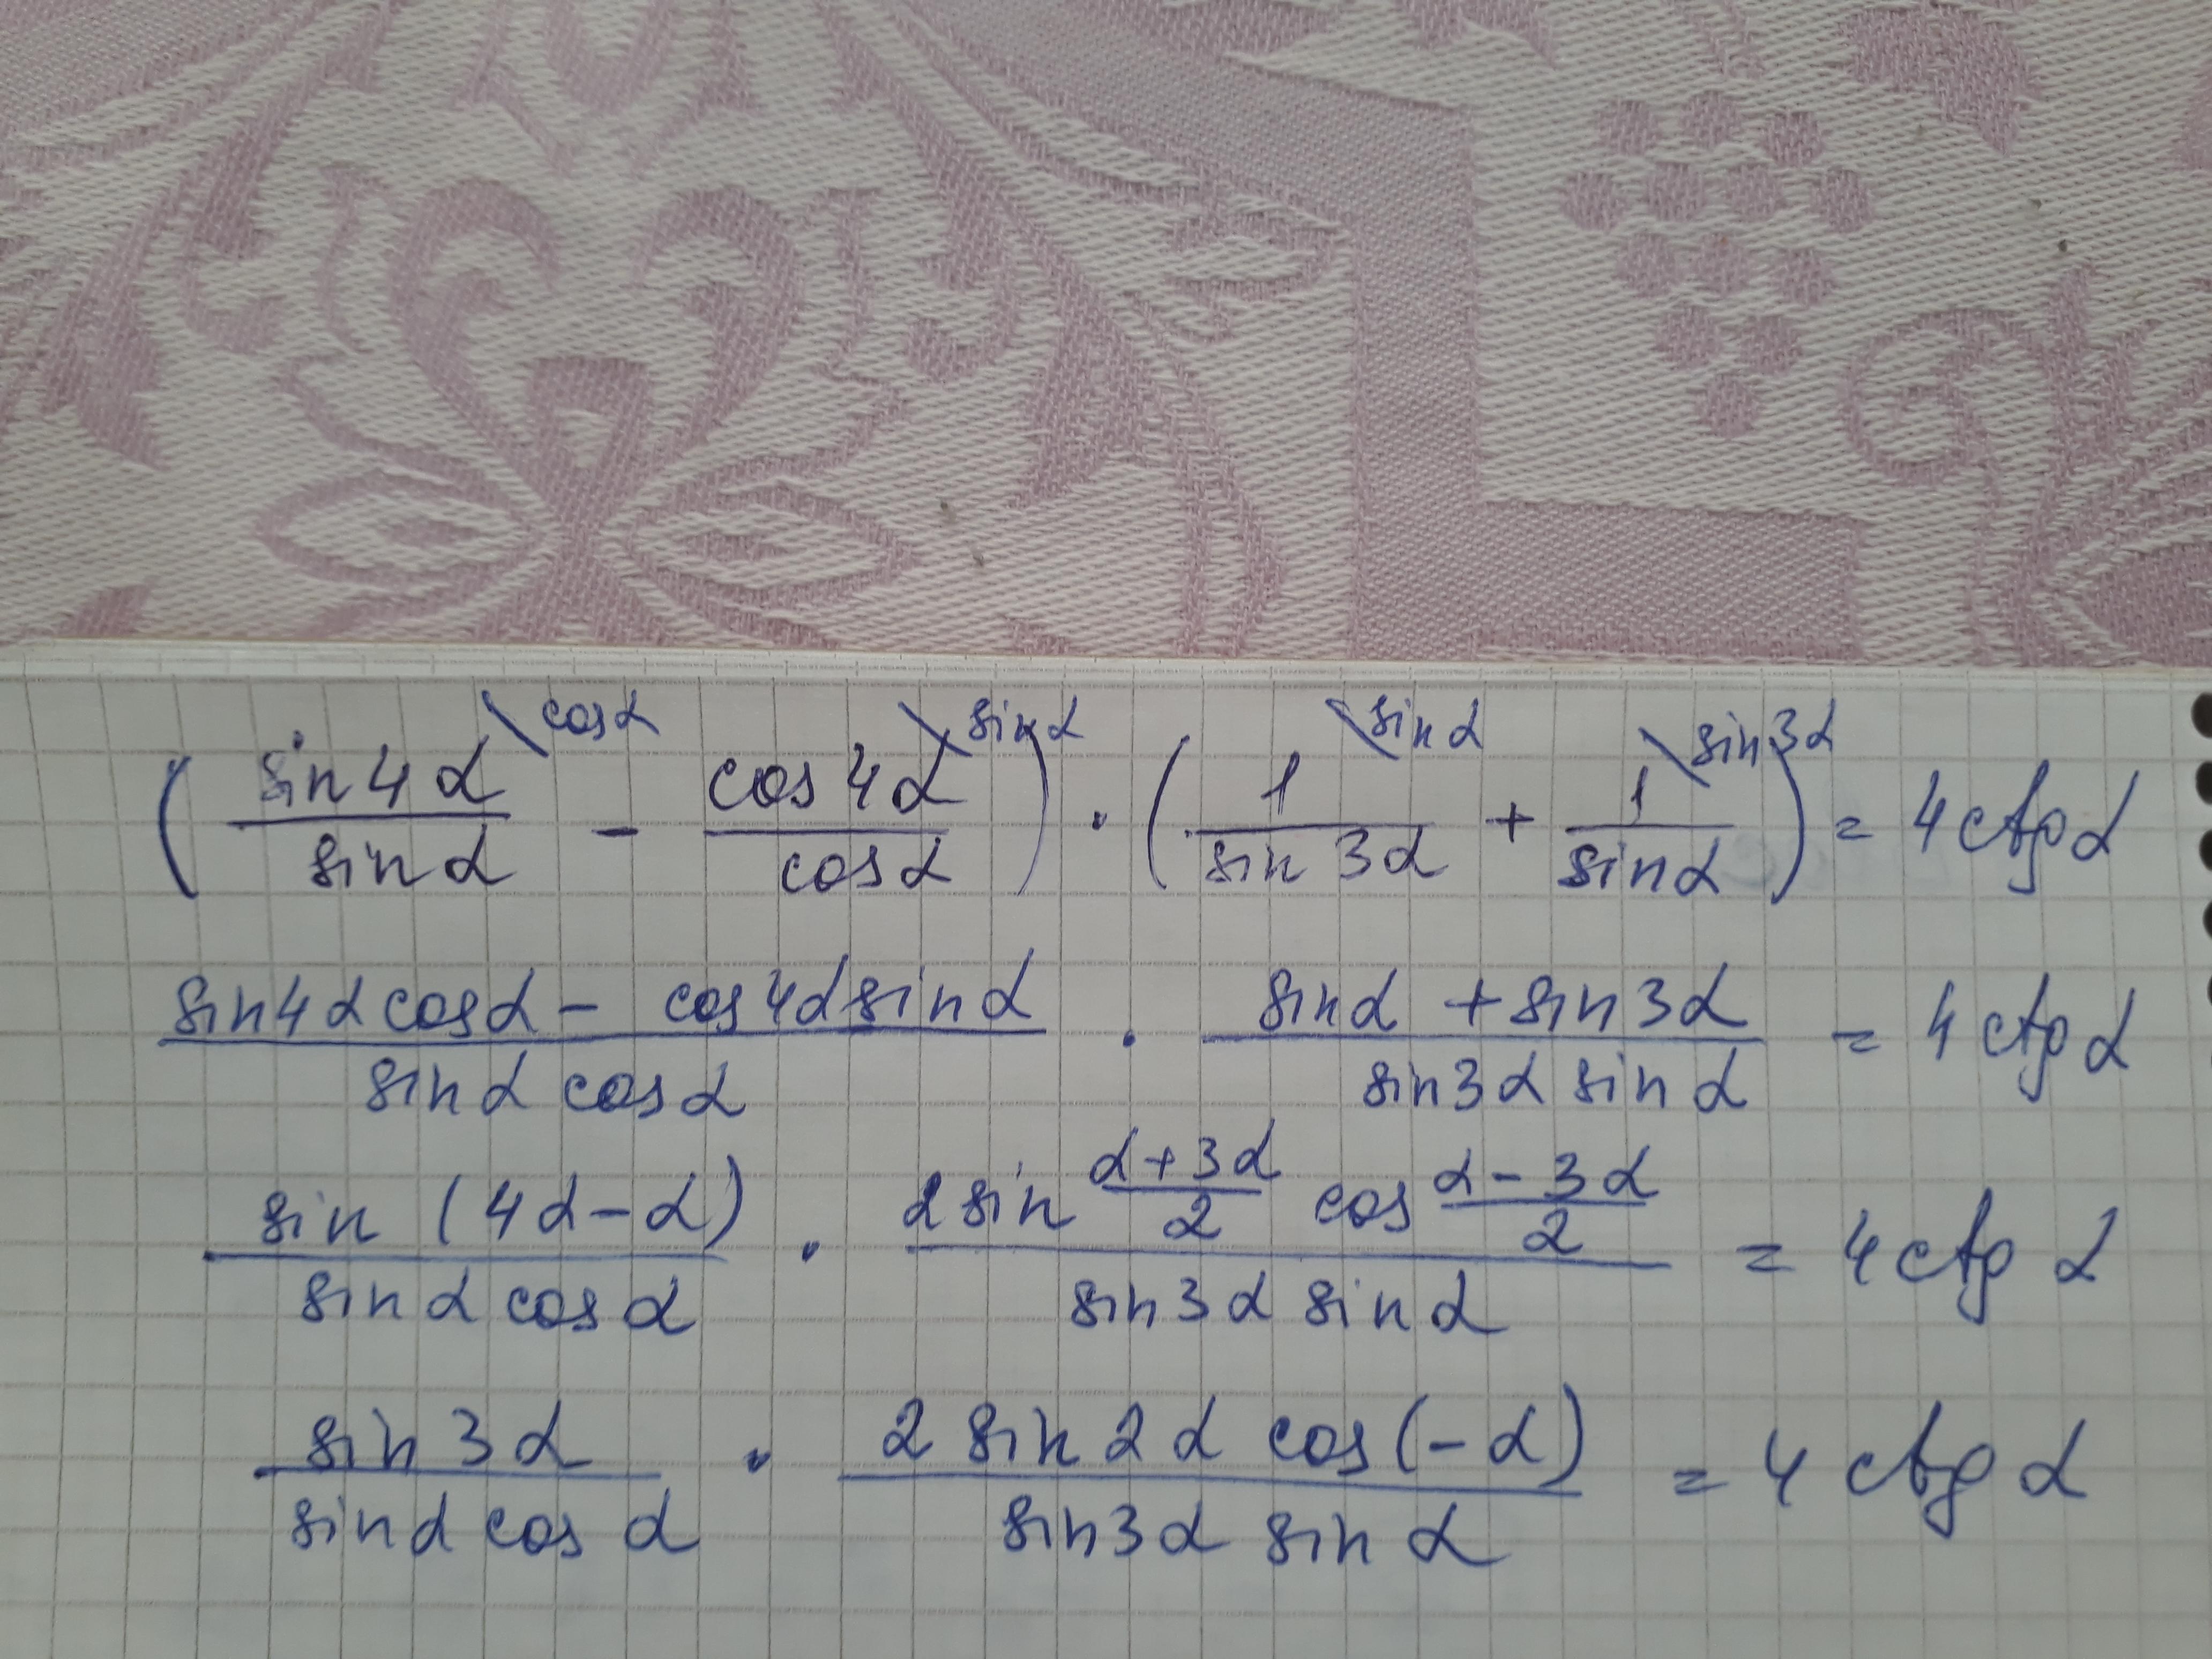 ( sin4α\cosα / sinα - cos4α\sinα / cosα ) · ( 1\sinα / sin3α + 1\sin3α / sinα ) = 4ctgα
sin4αcosα - cos4αsinα / sinα cosα · sinα + sin3α / sin3α sinα = 4ctgα
sin (4α-α) / sinα cosα · 2sin α+3α/2 cos α-3α/2 / sin3α sinα = 4ctg α
sin3α / sinα cosα · 2 sin2α cos(-α) / sin3α sinα = 4 ctg α